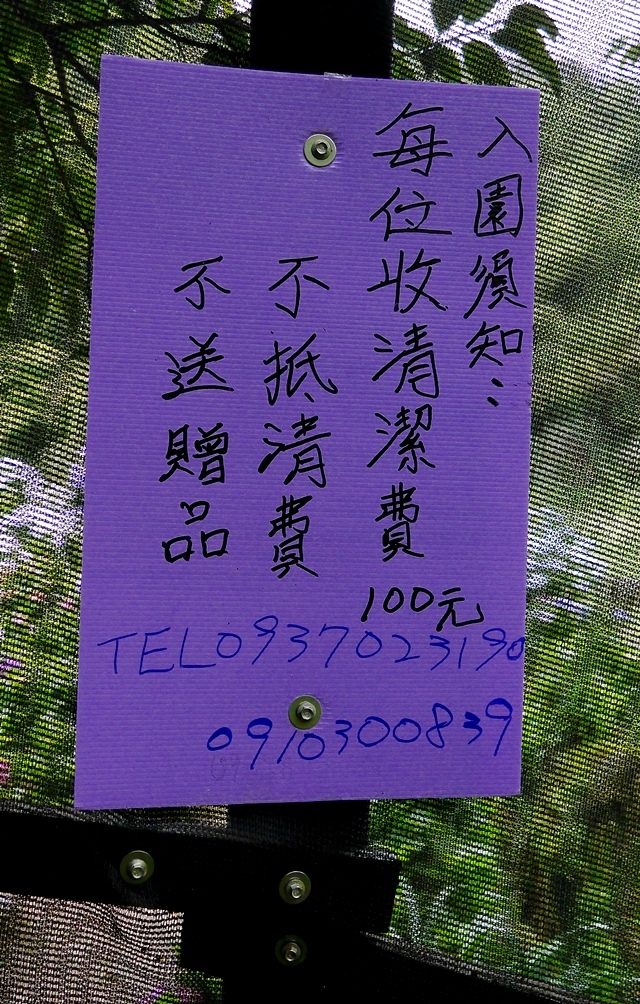 入園須知:
每位收清潔費
100元
不抵清費
不送贈品
TEL0937023190
0910300839